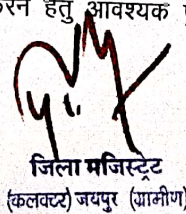 करने हेतु आवश्यक
जिला मजिस्ट्रेट
(कलक्टर) जयपुर (ग्रामीण)